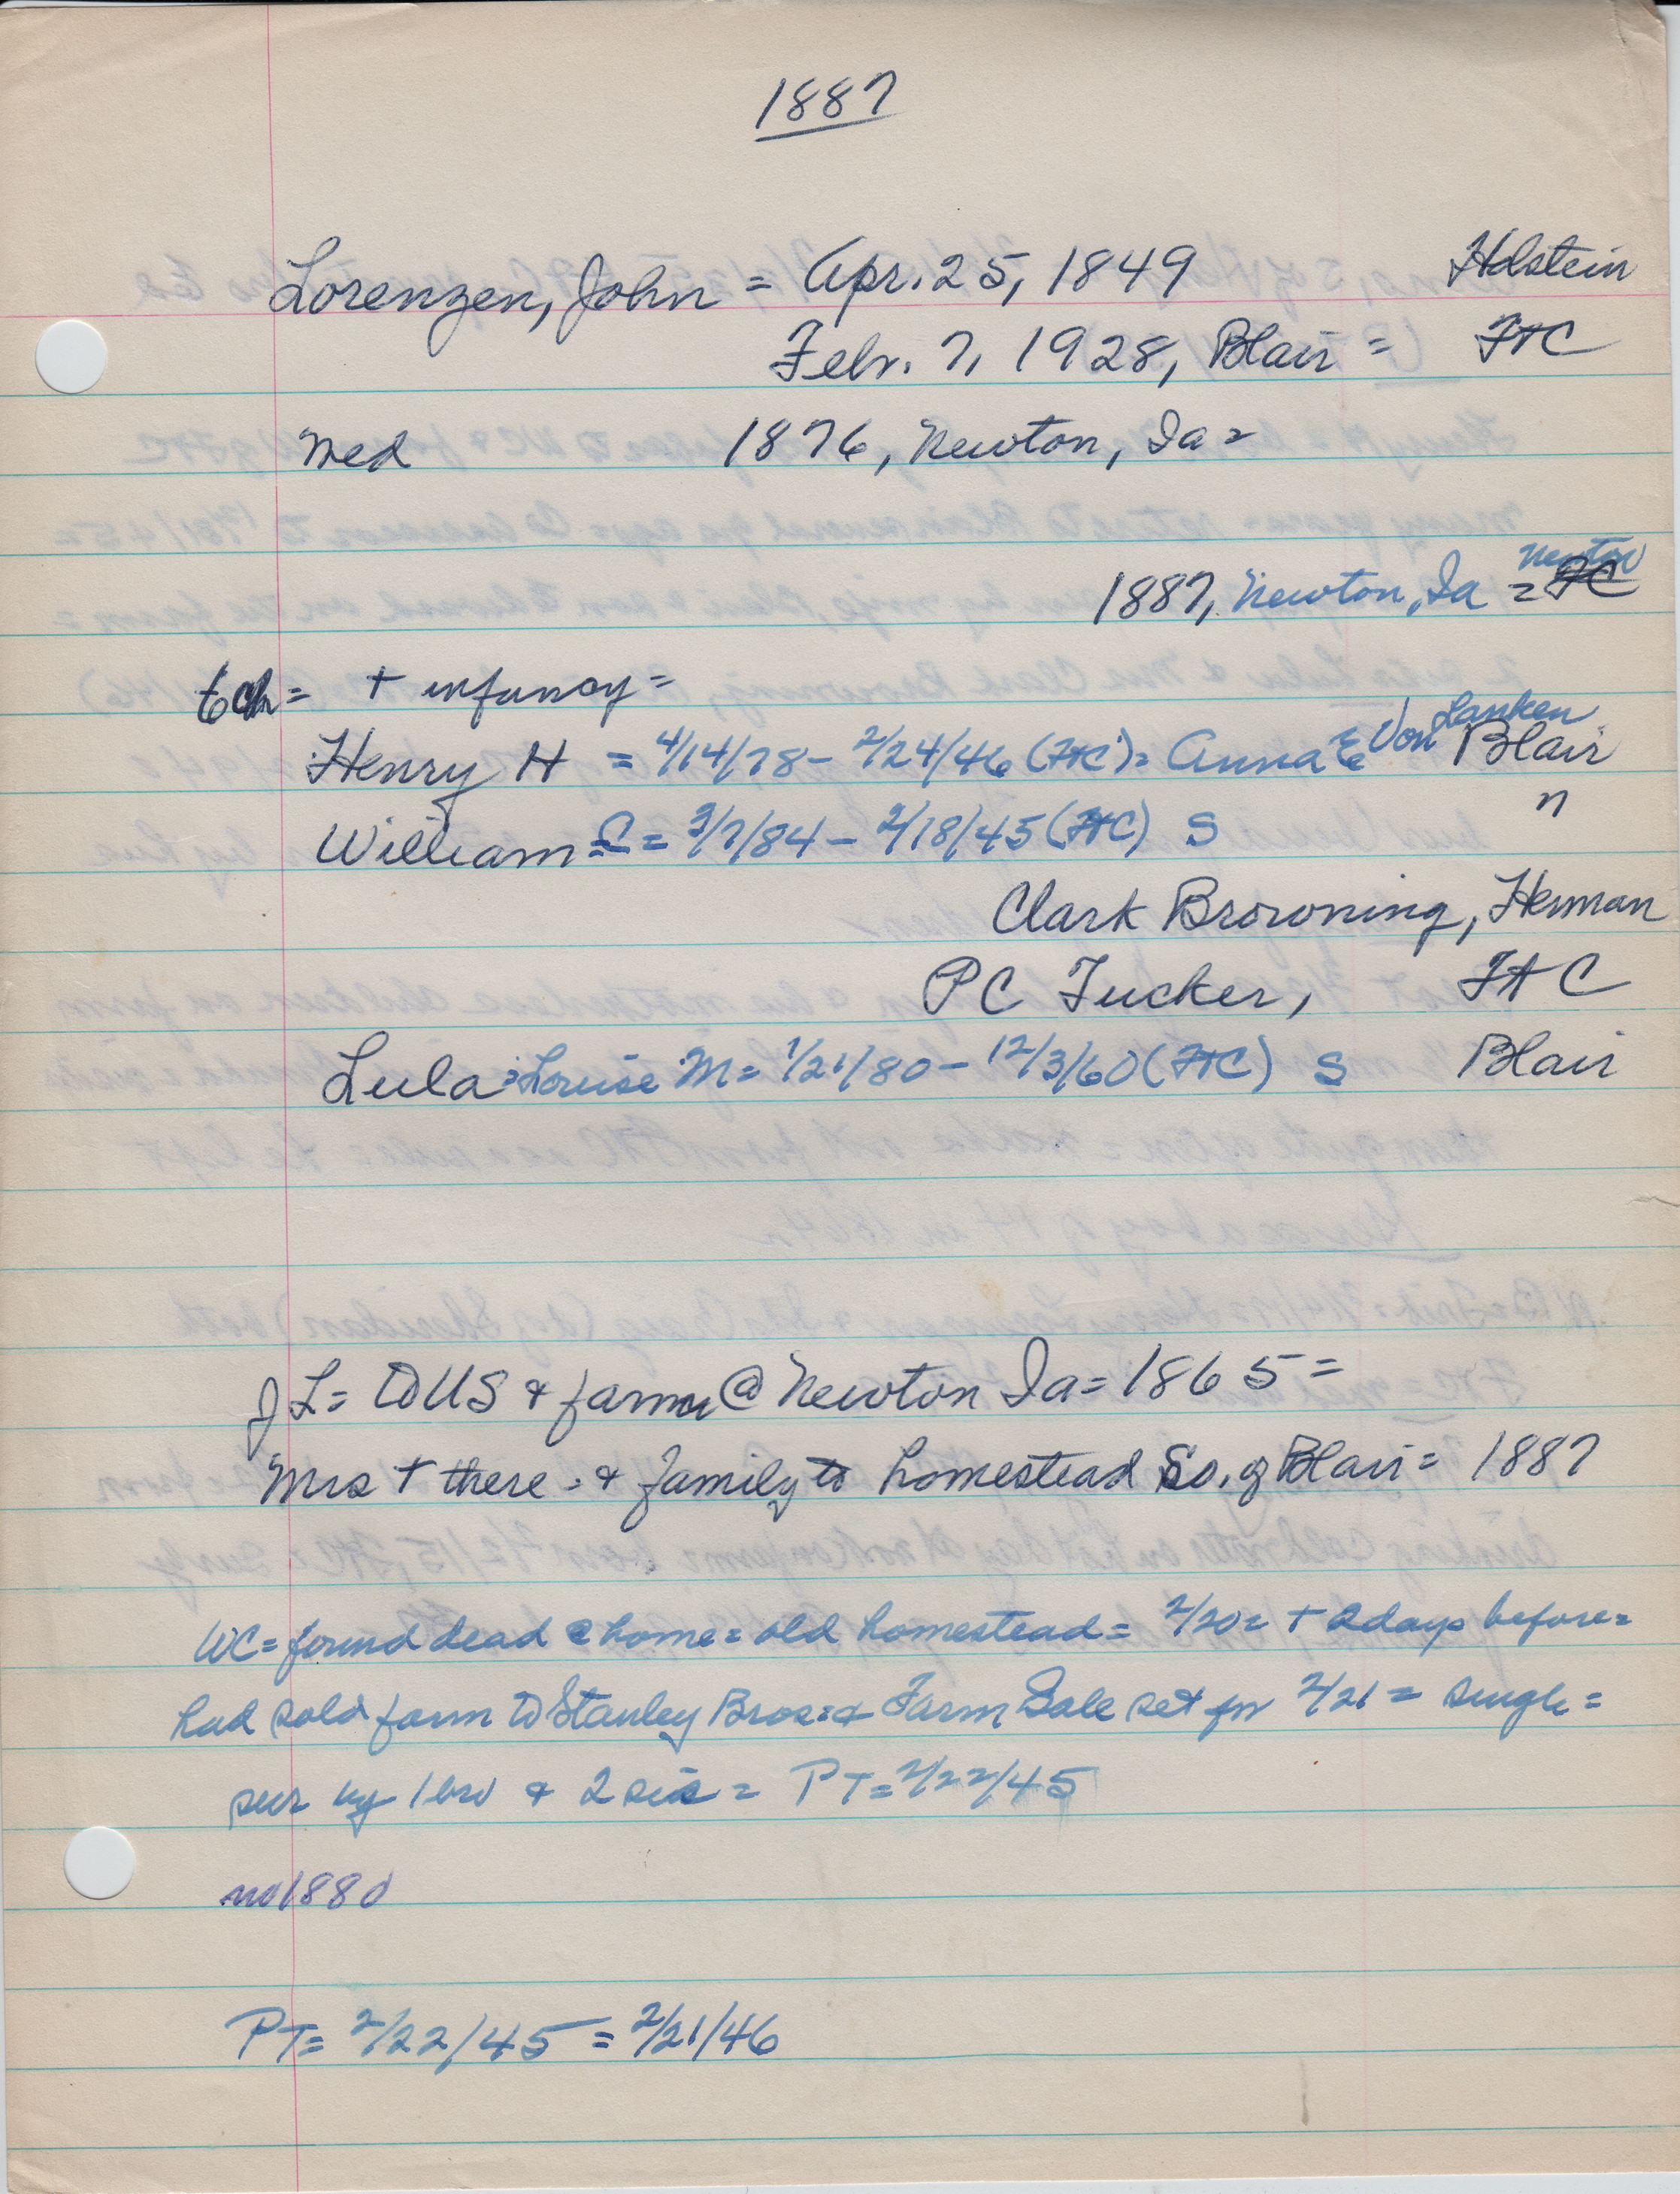 1887
Lorenzen, John = Apr. 25, 1849 Holstein
Febr. 7, 1928, Blair = FtC
Med 1876, Newton, Ia =
Newton
1887, Newton, Ia = FtC
6 ch = + infancy =
Henry H = 4/14/78 - 2/24/46 (FtC) = Anna E Von Lanken Blair
William C = 3/7/84 - 2/18/45 (FtC) S "
Clark Browning, Herman
PC Tucker, FtC
Lula = Louise M = 1/21/80 - 12/3/60 (FtC) S Blair
JL = to US & farm @ Newton Ia = 1865 =
Mrs + there = & family to homestead So. of Blair = 1887
WC = found dead @ home = old homestead = 2/20 = + 2 days before =
had sold farm to Stanley Bros = & Farm Sale set for 2/21 = single =
sur by 1 bro & 2 sis = PT = 2/22/45
no 1880
PT = 2/22/45 = 2/21/46